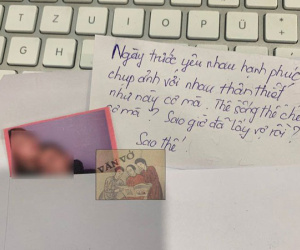 T Z U I O P Ü
G H
Ngày trước yêu nhau hạnh phúc
chụp ảnh với nhau thân thiết
như này cơ mà. Thế sống thế chế
cơ mà ? Sao giờ đã lấy vợ rồi ?
Sao thế
VĂN VỞ